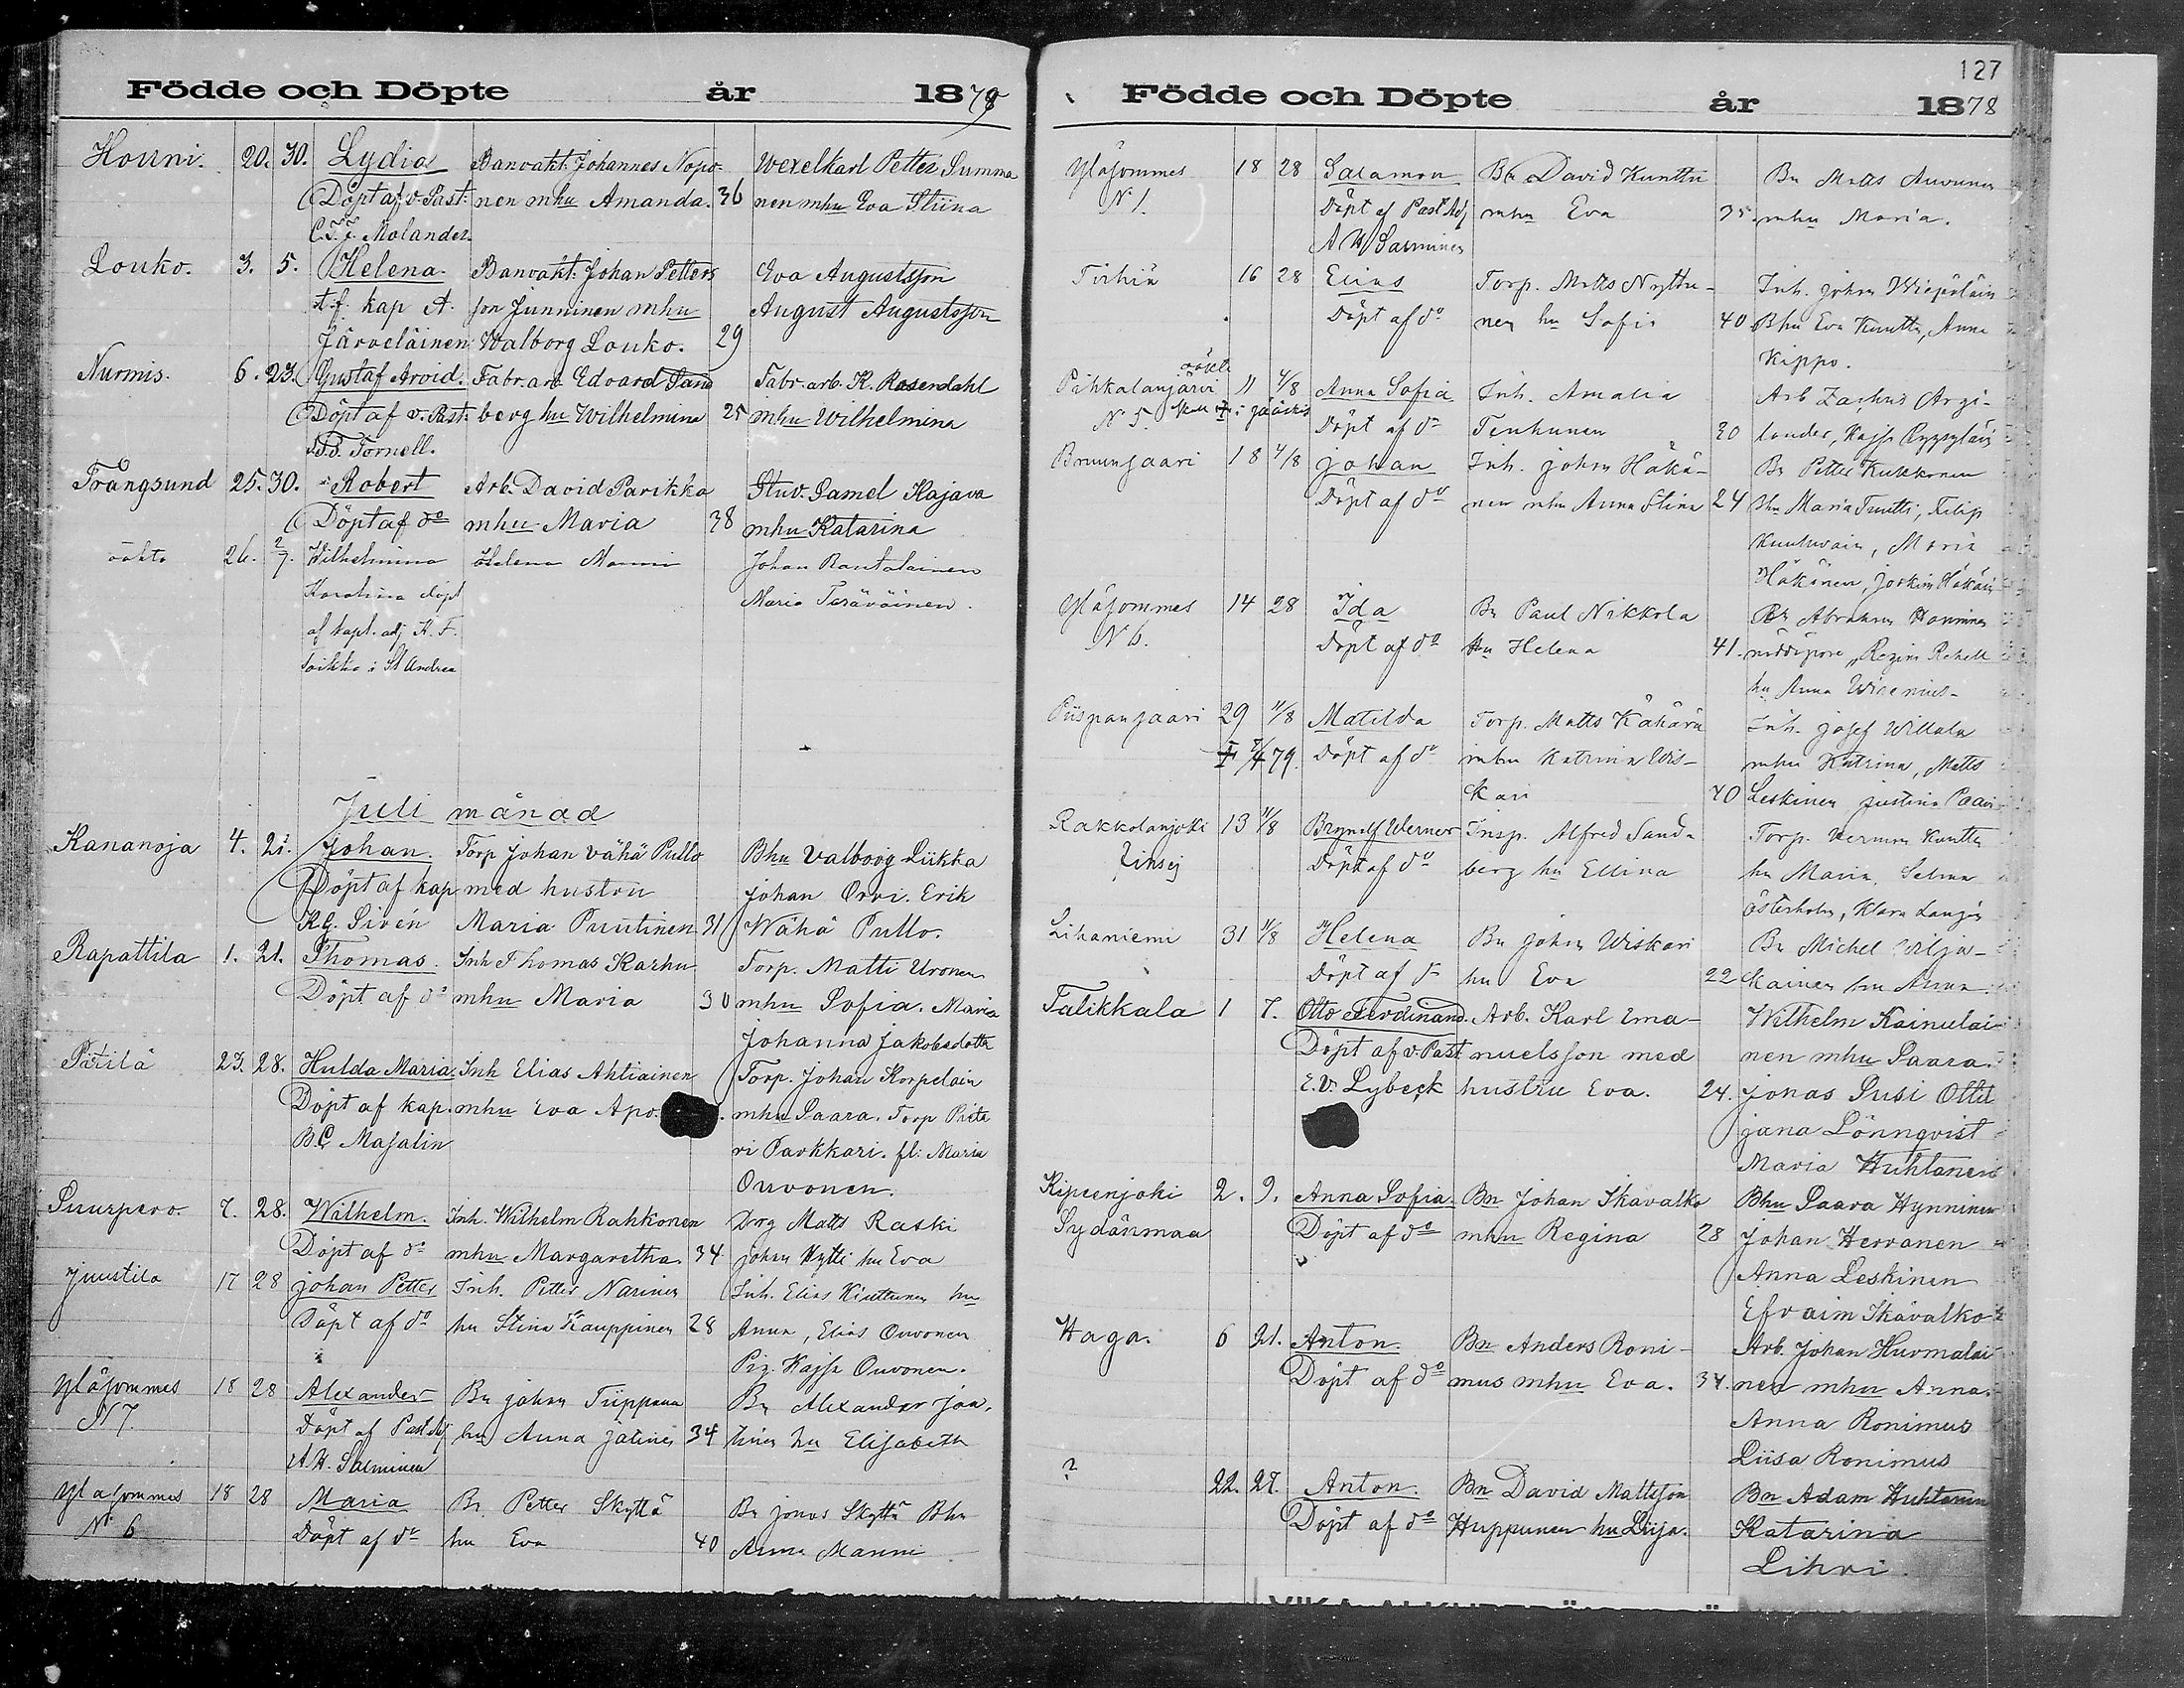 Födde och Döpte år 1878
Houni. 20. 30. Lydia Banvakt. Johannes Nopo- Wexelkarl Petter Summa
Döpt af v. Past. nen mhu Amanda. 36 nen mhu Eva Stiina
C.T.J. Molander.
Louko. 3. 5. Helena. Banvakt. Johan Petters Eva Augustsson
t.f. kap A. son Junninen mhu August Augustsson
Järveläinen Walborg Louko. 29
Nurmis. 6. 23. Gustaf Arvid. Fabr. arb Edvard Sand Fabr. arb. K. Rosendahl
Döpt af v. Past. berg hu Wilhelmina 25 mhu Wilhelmina
Tornell.
Trångsund 25. 30. Robert Arb. David Parikka Stuv. Samel Kajava
Döpt af do mhu Maria 38 mhu Katarina
oäkta 26. 2/7. Wilhelmina Helena Manni Johan Rantalainen
Karolina döpt Maria Teräväinen.
af kapl. adj K. F.
Soikka i St Andrea
Juli månad
Kananoja 4. 21. Johan. Torp Johan Vähä Pullo Bhu Valborg Liikka
Döpt af kap med hustru Johan Orvi. Erik
K.G. Sirén Maria Puutinen 31 Wähä Pullo.
Rapattila 1. 21. Thomas. Inh Thomas Karhu Torp. Matti Uronen
Döpt af do mhu Maria 30 mhu Sofia. Maria
Johanna Jakobsdotter
Pitilä 23. 28. Hulda Maria. Inh Elias Ahtiainen Torp. Johan Korpelain
Döpt af kap. mhu Eva Apo. mhu Saara. Torp Pieta
B.C Masalin ri Parkkari. fl: Maria
Ouvonen.
Suurpero 7. 28. Wilhelm. Inh. Wilhelm Rahkonen Drg Matts Raski
Döpt af do mhu Margaretha. 34 Johan Hytti hu Eva
Juustila 17 28 Johan Petter Inh. Petter Narinen Inh. Elias Kiuttunen hu
Döpt af do hu Stina Kauppinen 28 Anna, Elias Ouvonen
Pig. Kajsa Ouvonen.
Yläsommes 18 28 Alexander Bn Johan Tiippana Bn Alexander Joa-
N 7. Döpt af Past Adj hu Anna Jatinen 34 kinen hu Elisabeth
A.H. Salminen
Yläsommes 18 28 Maria Bn Petter Skyttä Bn Jonas Skyttä Bhu
N 6 Döpt af do hu Eva 40 Anna Manni
127
Födde och Döpte år 1878
Yläsommes 18 28 Salamon Bn David Kunttu Bn Matts Auvinen
N 1. Döpt af Past Adj mhu Eva 35 mhu Maria.
A H Salminen
Tirhiä 16 28 Elias Torp. Matts Nyttu- Inh. Johan Wiepäläin
Döpt af do nen hu Sofia 40 Bhu Eva Kunttu, Anna
Kippo.
oäkta
Pihkalanjärvi 11 4/8 Anna Sofia Inh. Amalia Arb Zachris Argi-
N 5. i Jääskis Döpt af do Tenhunen 30 lander, Kajsa
Bruunsaari 18 4/8 Johan Inh. Johan Häkä- Bn Petter Kukkonen
Döpt af do nen mhu Anna Stina 24 Bhu Maria Tuutti, Filip
Maria
Häkänen, Joakim Häkän
Yläsommes 14 28 Ida Bn Paul Nikkola Bn Abraham Honninen
N 6. Döpt af do hu Helena 41. Regina
hu Anna
Piispansaari 29 11/8 Matilda Torp. Matts Kähärä Inh. Josef Willala
79. Döpt af do mhu Katrina Wis- mhu Katrina, Matts
kari 40 Leskinen Justina
Rakkolanjoki 13 11/8 Brynolf Werner Insp. Alfred Sand- Torp. Herman Kunttu
Döpt af do berg hu Ellina hu Maria. Selma
Österholm, Klara
Lihaniemi 31 11/8 Helena Bn Johan Wiskari Bn Michel Wilja-
Döpt af do hu Eva 22 kainen hu Anna.
Talikkala 1 7. Otto Ferdinand. Arb. Karl Ema- Wilhelm Kainulai-
Döpt af v. Past nuelsson med nen mhu Saara.
E.V. Lybeck hustru Eva. 24. Jonas Susi Otti
jana Lönnqvist
Maria Huhtanen
Kipeenjoki 2. 9. Anna Sofia Bn Johan Skavalko Bhu Saara Hynninen
Sydänmaa Döpt af do mhu Regina 28 Johan Herranen
Anna Leskinen
Efraim Skavalko
Haga. 6 21. Anton. Bn Anders Roni- Arb. Johan Hurmalai
Döpt af do mus mhu Eva. 34. nen mhu Anna.
Anna Ronimus
Liisa Ronimus
? 22. 27. Anton. Bn David Mattsson Bn Adam Huhtanen
Döpt af do Huppunen hu Liisa. Katarina
Lihvi